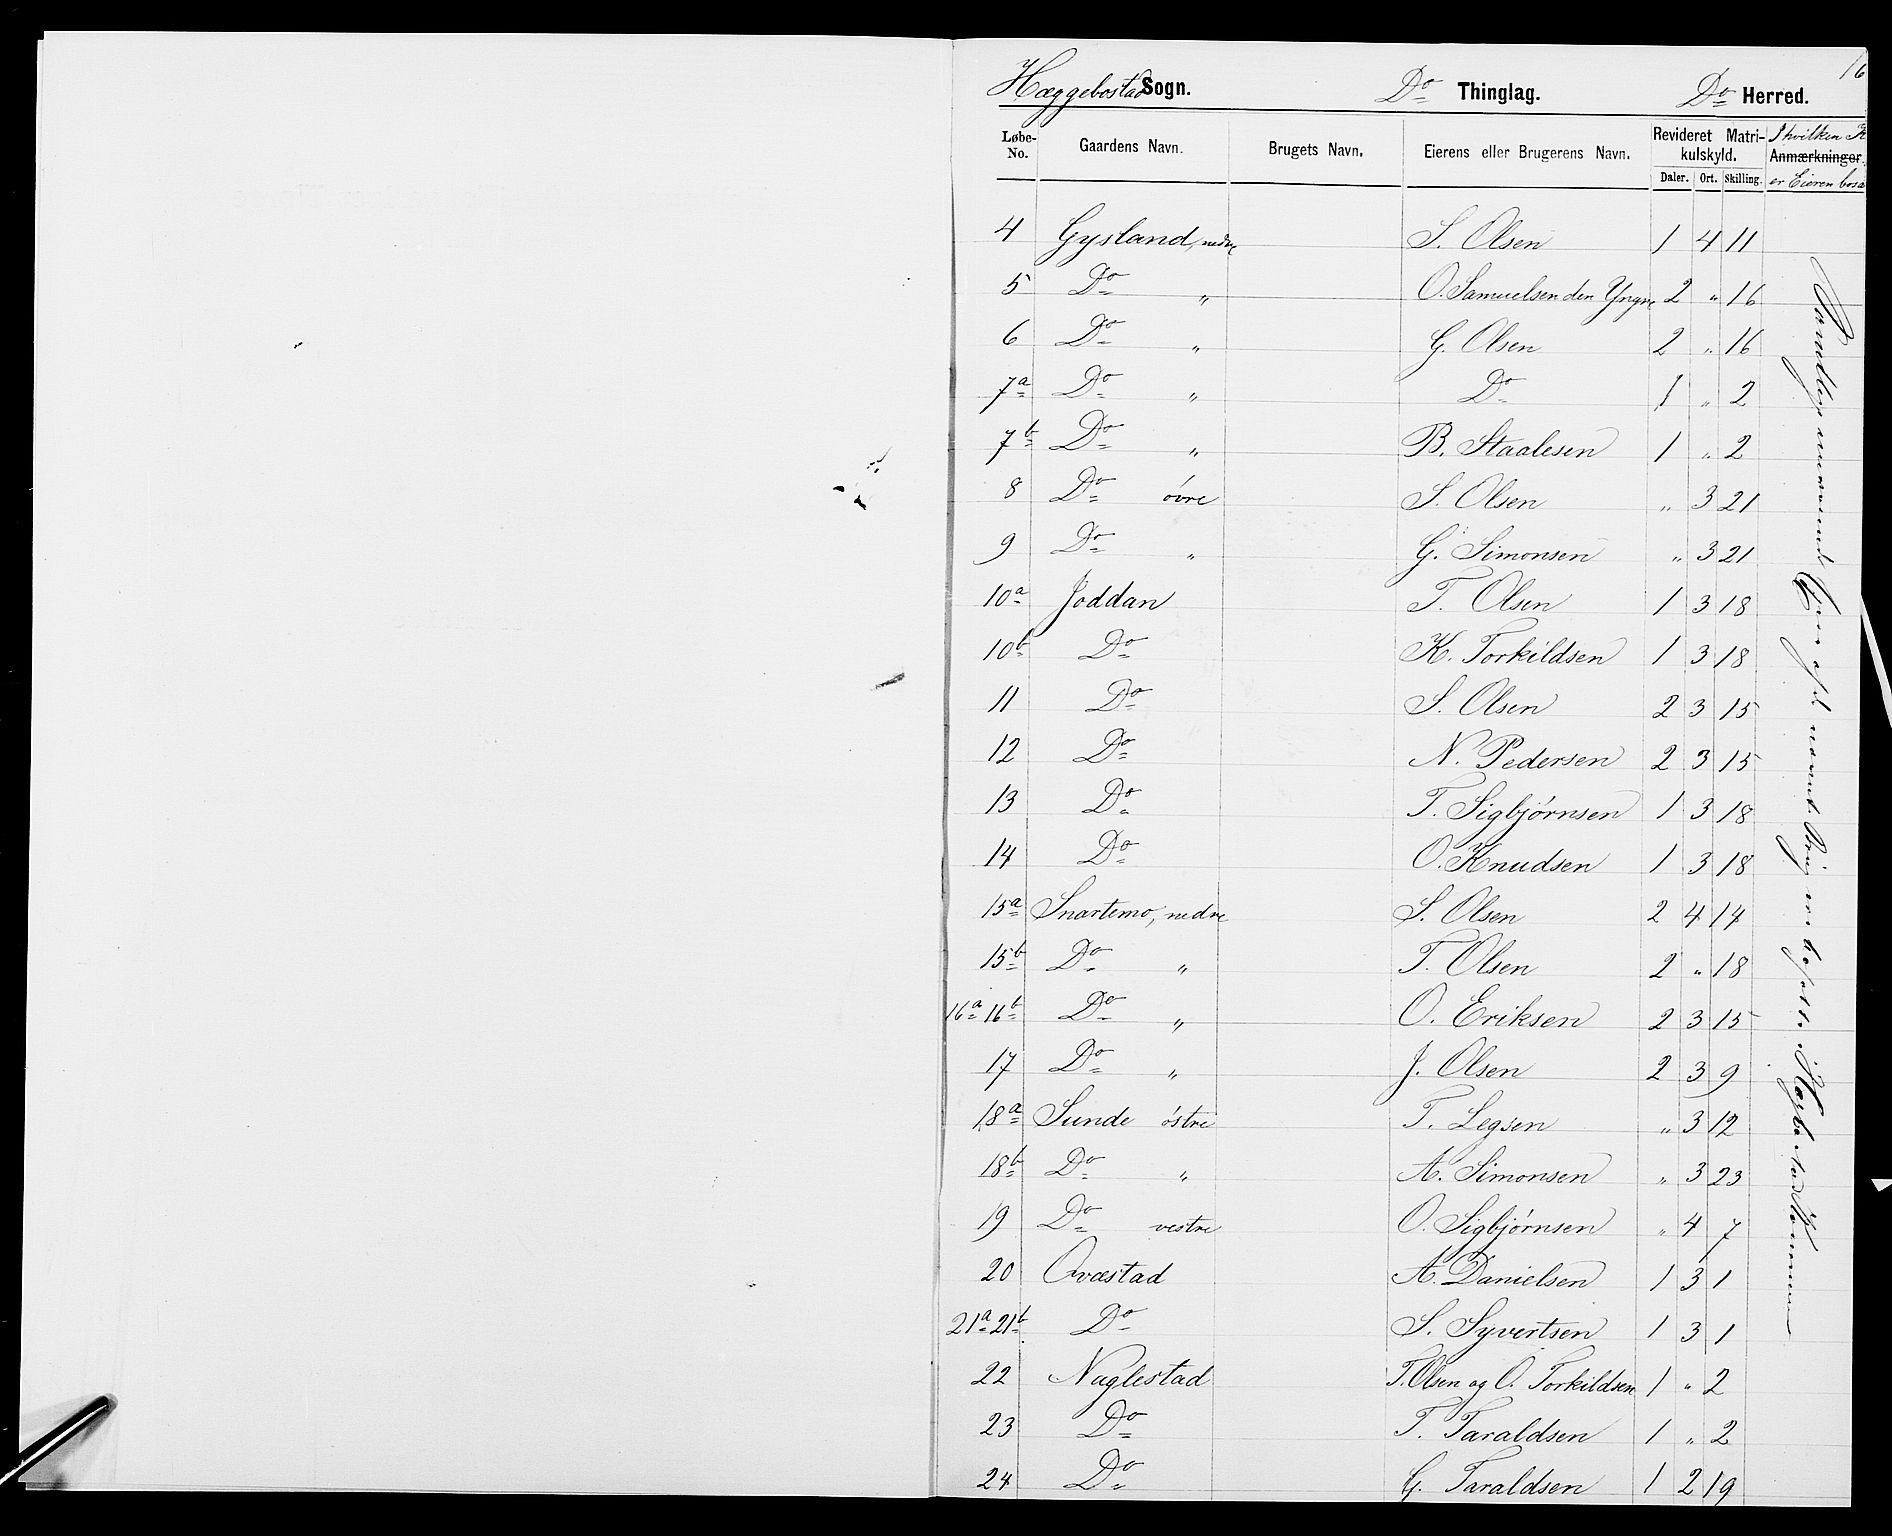 16
Hæggebostad Sogn. Do Thinglag. Do Herred.
Løbe-No. Gaardens Navn. Brugets Navn. Eierens eller Brugerens Navn. Revideret Matrikulskyld. I hvilken K
Anmærkninger.
Daler. Ort. Skilling. er Eieren bosa
4 Gysland, nedre S. Olsen 1 4 11
5 Do " O. Samuelsen den Yngre 2 " 16
6 Do " G. Olsen 2 " 16
7a Do " Do 1 " 2
7b Do " B. Staalesen 1 " 2
8 Do øvre S. Olsen " 3 21
9 Do " G. Simonsen " 3 21
10a Joddan T. Olsen 1 3 18
10b Do K. Torkildsen 1 3 18
11 Do S. Olsen 2 3 15
12 Do N. Pedersen 2 3 15
13 Do T. Sigbjørnsen 1 3 18
14 Do O. Knudsen 1 3 18
15a Snartemo, nedre S. Olsen 2 4 14
15b Do " T. Olsen 2 " 18
16a 16b Do " O. Eriksen 2 3 15
17 Do " J. Olsen 2 3 9
18a Sunde østre T. Legsen " 3 12
18b Do " A. Simonsen " 3 23
19 Do vestre O. Sigbjørnsen " 4 7
20 Qvæstad A. Danielsen 1 3 1
21a 21b Do S. Syvertsen 1 3 1
22 Naglestad T. Olsen og O. Torkildsen 1 " 2
23 Do T. Taraldsen 1 " 2
24 Do G. Taraldsen 1 2 19